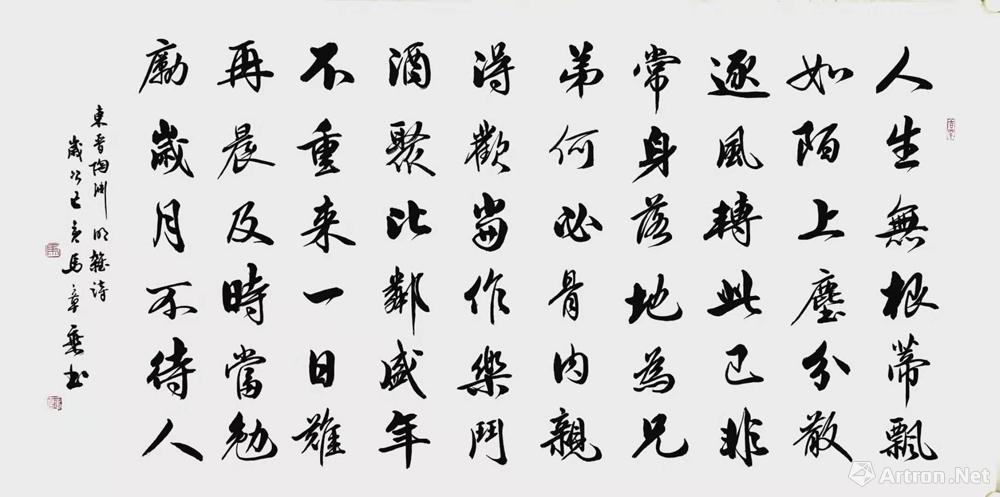 人生無根蒂飄
如陌上塵分散
逐風轉此已非
常身落地為兄
弟何必骨肉親
得歡當作樂鬥
酒聚比鄰盛年
不重来一日難
再晨及時當勉
勵歲月不待人
東晉陶渊明雜詩
歲次己亥馬章乘书
Artron.Net